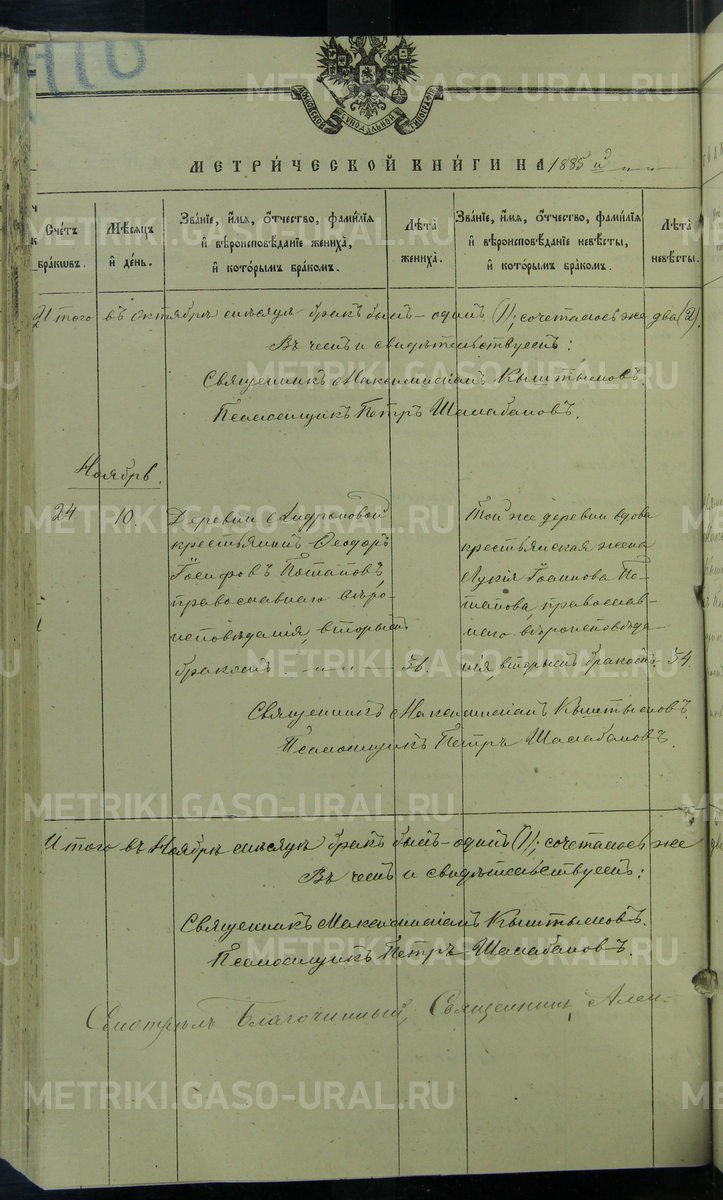 METRIKI.GASO-URAL.RU
МОСКОВСКОЙ СѴНОДАЛЬНОЙ ТИПОГРАФІИ
МЕТРИ́ЧЕСКОЙ КНИ́ГИ НА 1885й
Сче́тъ бра́кѡвъ.
Мѣ́сяцъ и҆ де́нь.
Зва́нїе, и҆́мя, ѻ҆́тчество, фами́лїя и҆ вѣроисповѣ́данїе жениха̀, и҆ кото́рымъ бра́комъ.
Лѣта̀ жениха̀.
Зва́нїе, и҆́мя, ѻ҆́тчество, фами́лїя и҆ вѣроисповѣ́данїе невѣ́сты, и҆ кото́рымъ бра́комъ.
Лѣта̀ невѣ́сты.
Итого въ Октябрѣ мѣсяцѣ бракъ былъ – одинъ (1); сочеталось же два (2).
Въ чемъ и свидѣтельствуемъ:
Священникъ Максимиліанъ Кыштымовъ.
Псаломщикъ Петръ Шалабановъ.
Ноябрь.
24. 10.
Деревни
крестьянинъ Ѳеодоръ
Іосифовъ Потаповъ,
православнаго вѣро-
исповѣданія, вторымъ
бракомъ. 56.
Той же деревни вдова
крестьянская жена
Лукія Іоаннова По-
тапова, православ-
наго вѣроисповѣда-
нія вторымъ бракомъ. 54.
Священникъ Максимиліанъ Кыштымовъ.
Псаломщикъ Петръ Шалабановъ.
Итого въ Ноябрѣ мѣсяцѣ бракъ былъ – одинъ (1); сочеталось же
Въ чемъ и свидѣтельствуемъ:
Священникъ Максимиліанъ Кыштымовъ.
Псаломщикъ Петръ Шалабановъ.
Смотрѣлъ Благочинный, Священникъ Алек-